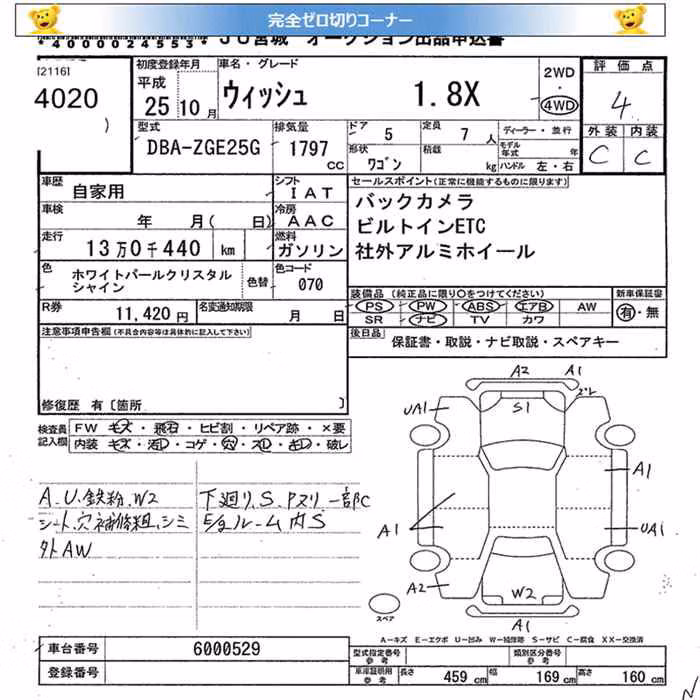 完全ゼロ切りコーナー
*4000024553* JU宮城 オークション出品申込書
[2116]
4020
)
初度登録年月
平成
25 10 月
車名・グレード
ウィッシュ 1.8X
2WD
・
4WD
評価点
4
外装 内装
C C
型式
DBA-ZGE25G
排気量
1797 CC
ドア 5
定員 7 人
形状 ワゴン
積載 kg
ディーラー・並行
モデル年式 年
ハンドル 左・右
車歴 自家用
シフト IAT
車検 年 月( 日)
冷房 AAC
走行 13万0千440 km
燃料 ガソリン
色 ホワイトパールクリスタルシャイン
色替
色コード 070
R券 11,420円
名変通知期限 月 日
セールスポイント(正常に機能するものに限ります)
バックカメラ
ビルトインETC
社外アルミホイール
装備品 (純正品に限り○をつけてください)
PS PW ABS エアB AW
SR ナビ TV カワ
新車保証書
有・無
後日品 保証書・取説・ナビ取説・スペアキー
注意事項申告欄(不具合内容等は具体的に記入して下さい)
修復歴 有 [箇所 ]
検査員記入欄
FW キズ・飛石・ヒビ割・リペア跡・×要
内装 キズ・汚レ・コゲ・穴・スレ・キレ・破レ
A.U.鉄粉.W2
シート.穴補修粗.シミ
外AW
下廻り.S.Pスリ一部C
E/gルーム内S
A2 A1
UA1 S1
A1 A1
UA1
A2 W2
A1
スペア
A-キズ E-エクボ U-凹み W-補修跡 S-サビ C-腐食 XX-交換済
車台番号 6000529
登録番号
型式指定番号 参考
類別区分番号 参考
車庫証明用 参考
長さ 459 cm 幅 169 cm 高さ 160 cm